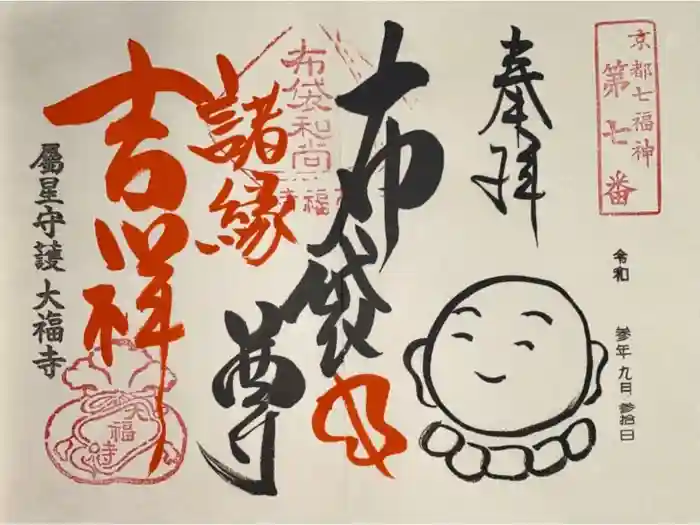 京都七福神
第七番
奉拝
令和
参年九日参拾日
布袋尊
布袋和尚
諸縁
吉祥
属星守護 大福寺
大福寺